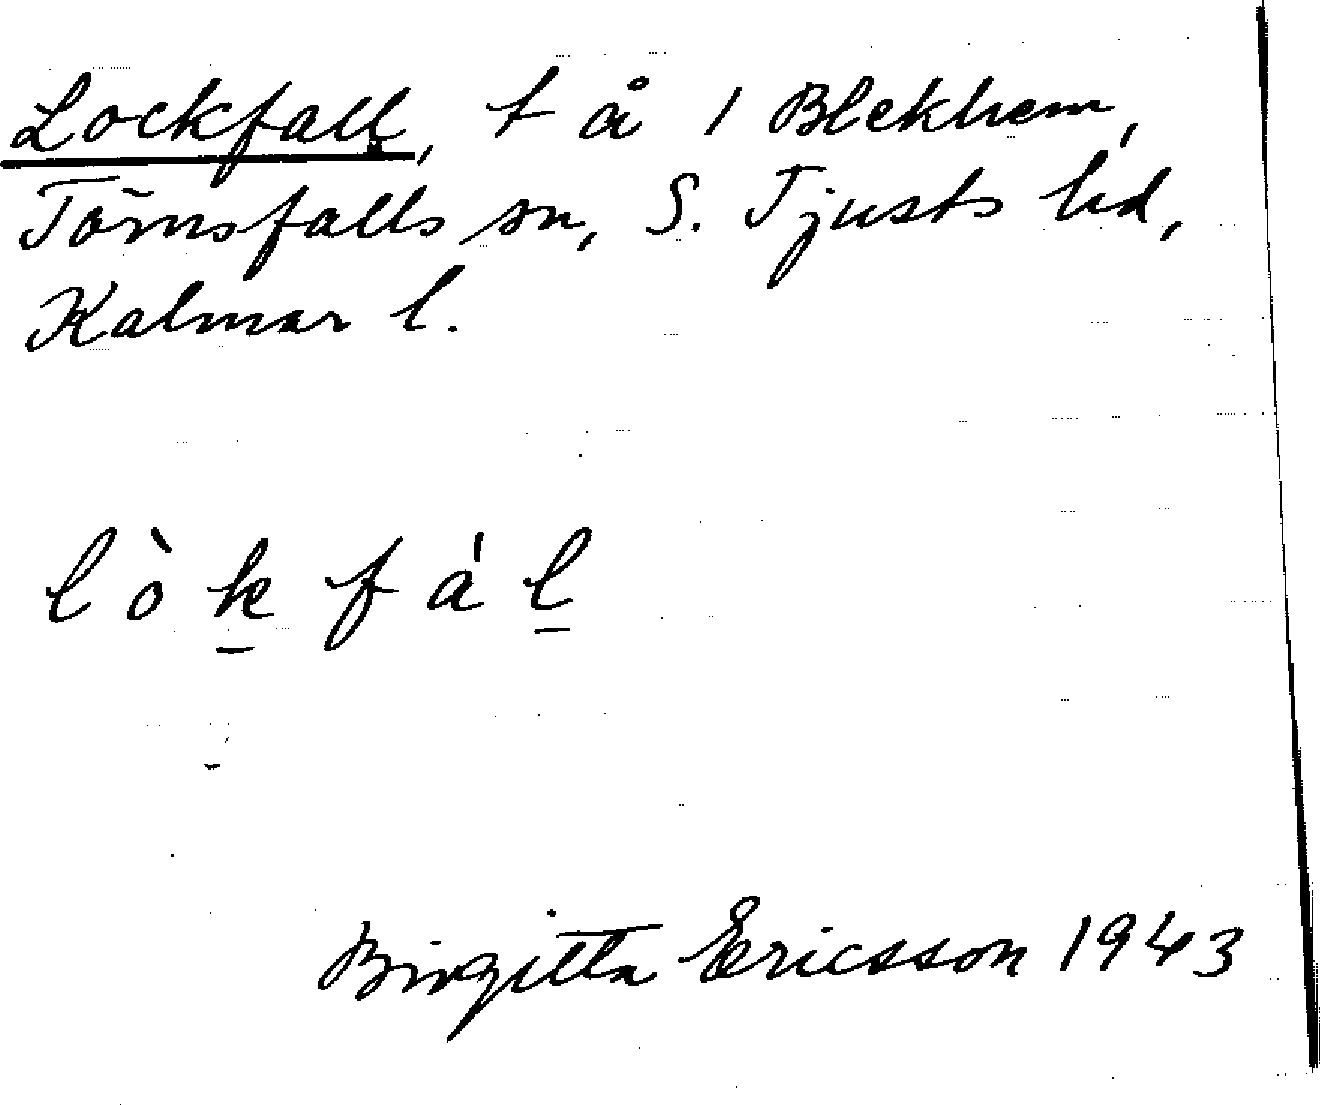 Lockfall, t å 1 Blekhem,
Törnsfalls sn, S. Tjusts hd,
Kalmar l.
l ò k f á l
Birgitta Ericsson 1943